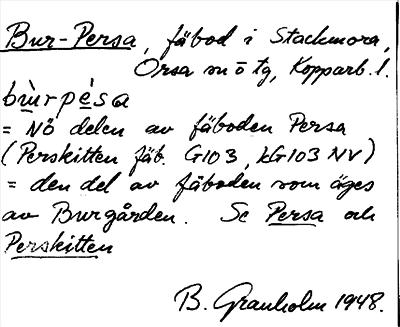 Bur-Persa, fäbod i Stackmora,
Orsa sn ö tg, Kopparb. l.
bùrpèsa
= NÖ delen av fäboden Persa
(Perskitten fäb. G103, kG103 NV)
= den del av fäboden som äges
av Burgården. Se Persa och
Perskitten
B. Granholm 1948.